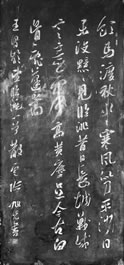 飲馬渡秋水々寒風似刀平沙日
未没黯々見臨洮昔日長城戰咸
言意氣高黃塵足今古白
骨亂蓬蒿
王昌齡